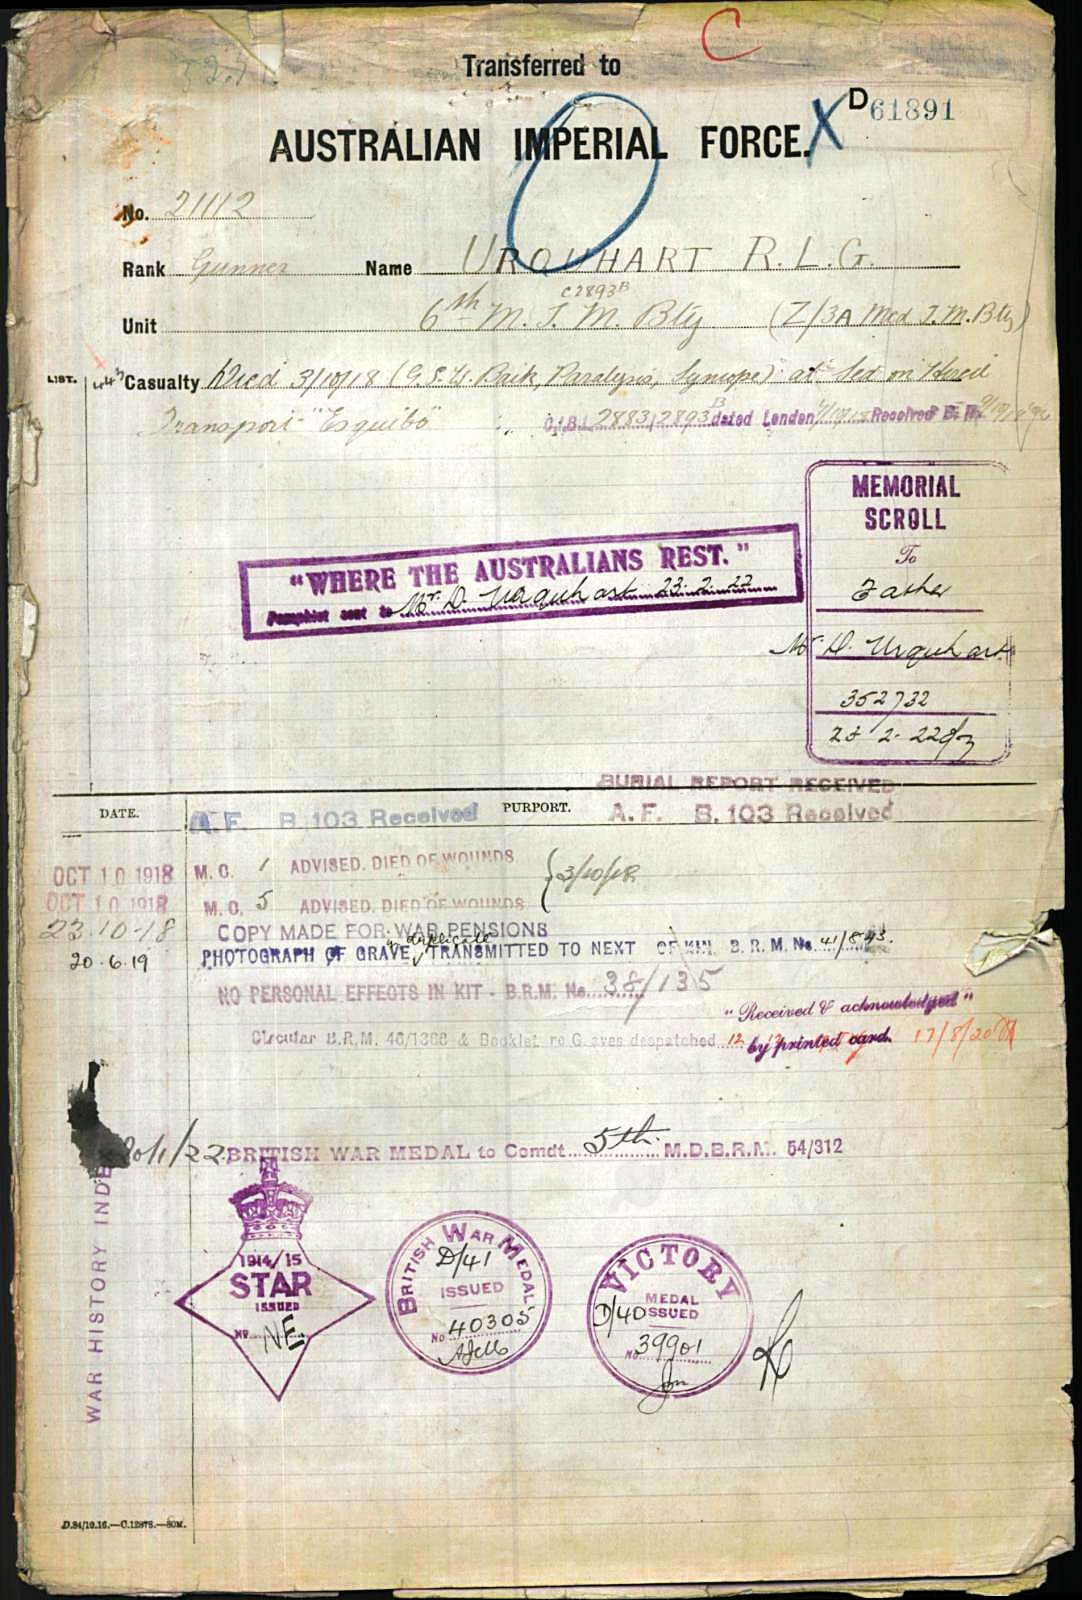 C
Transferred to
D61891
AUSTRALIAN IMPERIAL FORCE. X
No. 21112
Rank Gunner Name URQUHART R.L.G.
C2893B
Unit 6th M.T.M. Bty (Z/3A Med T.M. Bty)
LIST. 443 Casualty Died 3/10/18 (G.S.W. Back, Paralysis, Syncope) at Sea on Hired
Transport "Esquibo" C.I.B.L. 2883, 2893B dated London Received B.R.
MEMORIAL
SCROLL
To
Father
Mr D. Urquhart
352732
23 2. 22
"WHERE THE AUSTRALIANS REST."
Pamphlet sent to Mr. D. Urquhart 23.2.22
BURIAL REPORT RECEIVED
DATE. PURPORT.
A.F. B.103 Received A.F. B.103 Received
OCT 10 1918 M.C. 1 ADVISED. DIED OF WOUNDS 3/10/18
OCT 10 1918 M.C. 5 ADVISED. DIED OF WOUNDS
23.10.18 COPY MADE FOR WAR PENSIONS
in duplicate
20.6.19 PHOTOGRAPH OF GRAVE TRANSMITTED TO NEXT OF KIN. B.R.M. No.
NO PERSONAL EFFECTS IN KIT - B.R.M. No. 38/135
"Received & acknowledged"
Circular B.R.M. 46/1388 & Booklet re Graves despatched 12 by printed card. 17/8/20
/1/22 BRITISH WAR MEDAL to Comdt. 5th. M.D.B.R.M. 54/312
WAR HISTORY INDEX
1914/15
STAR
ISSUED
No. NE
BRITISH WAR MEDAL
D/41
ISSUED
No 40305
VICTORY
MEDAL
D/40 ISSUED
No 39901
D.84/10.16.—C.12878.—80M.